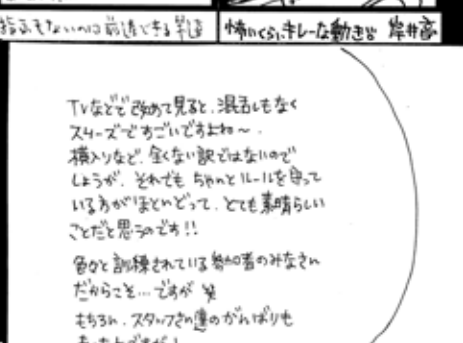 指示もないのに前進できる
怖いくらいキレーな動き
TVなどで改めて見ると、混乱もなく
スムーズですごいですよね〜.
横入りなど、全くない訳ではないので
しょうが、それでも ちゃんとルールを守って
いる方がほとんどって、とても素晴らしい
ことだと思うのです!!
色々と訓練されている参加者のみなさん
だからこそ…ですが 笑
もちろん、スタッフさん達のがんばりも